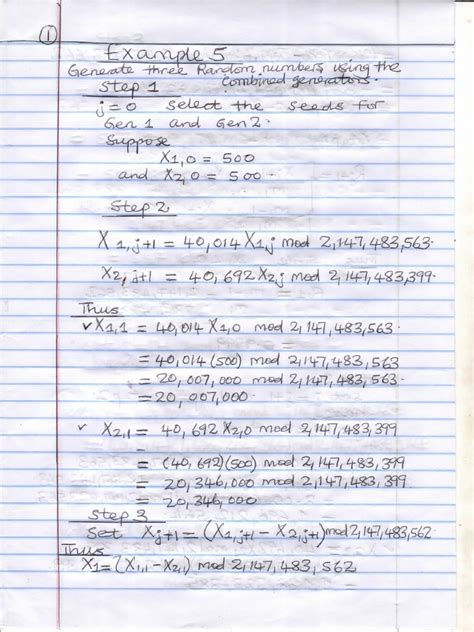 1
Example 5
Generate three Random numbers using the
combined generators.
Step 1
j=0 select the seeds for
Gen 1 and Gen 2.
Suppose
X1,0 = 500
and X2,0 = 500.
Step 2
X1,j+1 = 40,014 X1,j mod 2,147,483,563.
X2,j+1 = 40,692 X2,j mod 2,147,483,399.
Thus
✓X1,1 = 40,014 X1,0 mod 2,147,483,563.
= 40,014(500) mod 2,147,483,563
= 20,007,000 mod 2,147,483,563.
= 20,007,000.
✓ X2,1 = 40,692 X2,0 mod 2,147,483,399
= (40,692)(500) mod 2,147,483,399
= 20,346,000 mod 2,147,483,399
= 20,346,000
Step 3
Set Xj+1 = (X1,j+1 - X2,j+1) mod 2,147,483,562.
Thus
X1 = (X1,1 - X2,1) mod 2,147,483,562